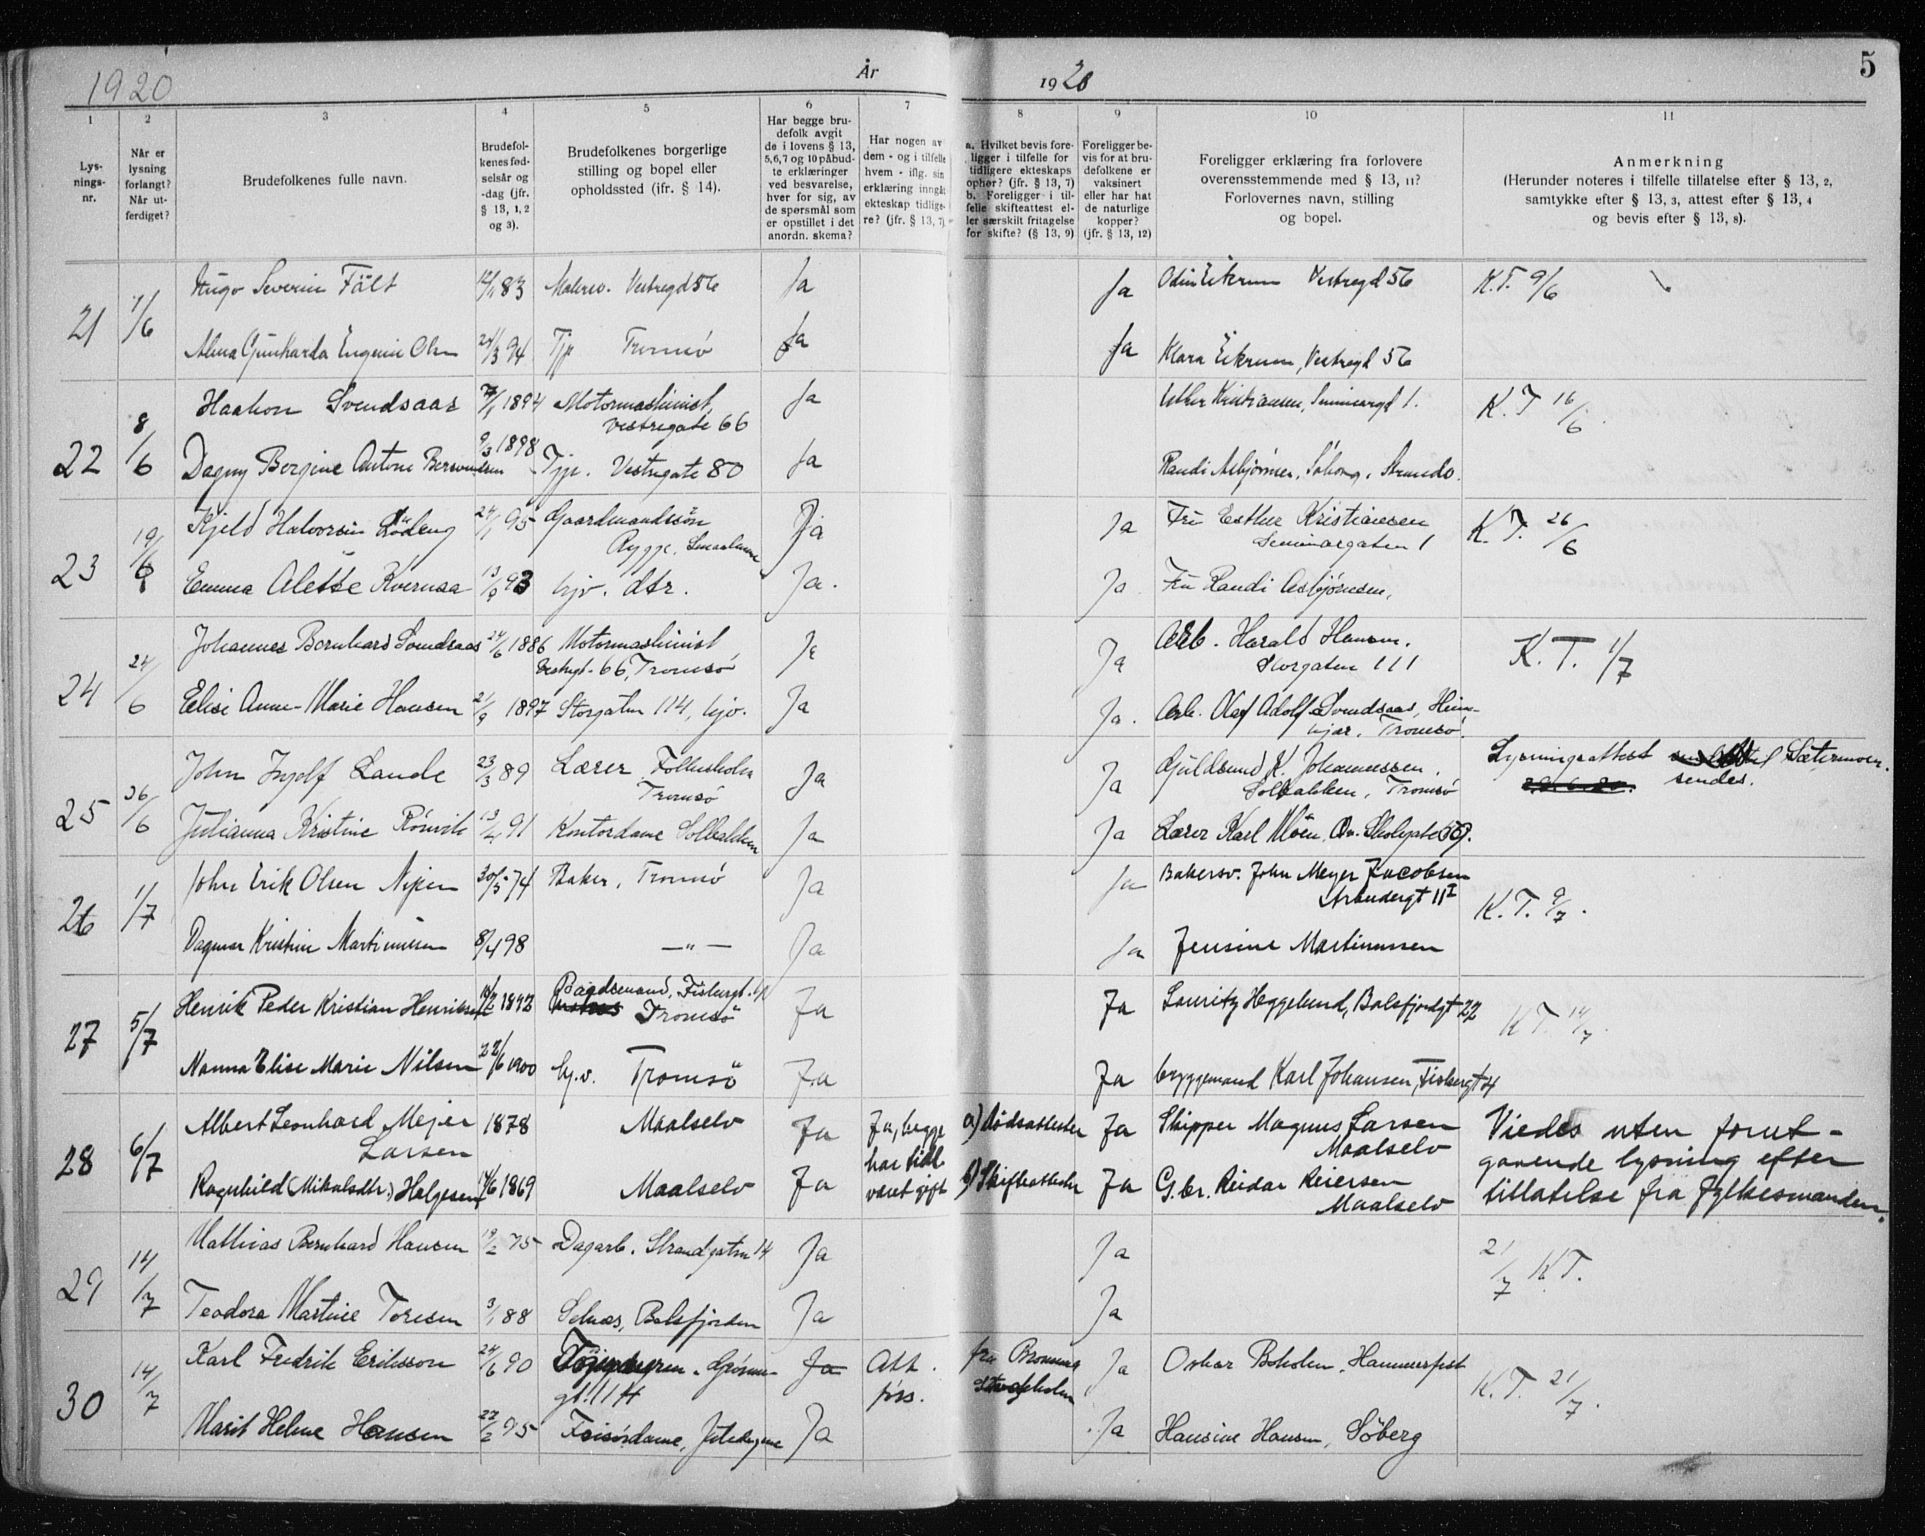 1920 År 1920 5
1 2 3 4 5 6 7 8 9 10 11
Lys-
nings-
nr.
Når er
lysning
forlangt?
Når ut-
ferdiget?
Brudefolkenes fulle navn.
Brudefol-
kenes fød-
selsår og
-dag (jfr.
§ 13, 1, 2
og 3).
Brudefolkenes borgerlige
stilling og bopel eller
opholdssted (jfr. § 14).
Har begge bru-
defolk avgit
de i lovens § 13,
5,6,7 og 10 påbud-
te erklæringer
ved besvarelse,
hver for sig, av
de spørsmål som
er opstillet i det
anordn. skema?
Har nogen av
dem - og i tilfelle
hvem - iflg. sin
erklæring inngått
ekteskap tidlige-
re? (jfr. § 13, 7)
a. Hvilket bevis fore-
ligger i tilfelle for
tidligere ekteskaps
ophør? (jfr. § 13, 7)
b. Foreligger i til-
felle skifteattest el-
ler særskilt fritagelse
for skifte? (§ 13, 9)
Foreligger be-
vis for at bru-
defolkene er
vaksinert
eller har hat
de naturlige
kopper?
(jfr. § 13, 12)
Foreligger erklæring fra forlovere
overensstemmende med § 13, 11?
Forlovernes navn, stilling
og bopel.
Anmerkning
(Herunder noteres i tilfelle tillatelse efter § 13, 2,
samtykke efter § 13, 3, attest efter § 13, 4
og bevis efter § 13, 8).
21 1/6 Hugo Severin Fält 83 Malersv. Vestregd 56 Ja Ja Odin Eikrem Vestregd 56 K.T. 9/6
Alma Gunharda Eugenie 24/3 94 Tjp Tromsö Ja Ja Klara Eikrem, Vestregd 56
22 8/6 Haakon Svendsaas 1894 Motormaskinist, Ja Esther Kristiansen, 1. K.T 16/6.
Vestregate 66
Dagny Bergine Antone 9/3 1898 Tjp. Vestregate 80 Ja Randi Asbjörnsen, Söborg,
23 19/6 Kjeld Halvorsen Lödeng 24/1 95 Gaardmandssön Ja Ja Fru Esther Kristiansen K.T. 26/6
Rygge, Smaalenene Seminargaten 1
Emma Alette Kvernaa 13/9 93 hjv. dtr. Ja. Ja. Fru Randi Asbjörnsen,
24 24/6 Johannes Bernhard Svendsaas 24/6 1886 Motormaskinist Ja Ja Arb. Harald Hansen. K.T. 1/7
Vestregt. 66, Tromsö Storgaten 111
Elise Anne-Marie Hansen 21/9 1897 Storgaten 114, hjv. Ja Ja. Arb. Olaf Adolf Svendsaas, Heim-
Tromsö.
25 26/6 John Ingolf Lande 23/3 89 Lærer, Ja Ja Guldsmed K. Johannessen. Lysningsattest Sætermoen.
Tromsö Solbakken, Tromsö sendes.
Julianna Kristine Rönvik 91 Kontordame Solbakken Ja Ja Lærer Karl Moen,
26 1/7 John Erik Olsen Nipen 30/3 74 Baker, Tromsö Ja Ja Bakersv. John Meyer Jacobsen K.T. 9/7.
Dagmar Kristine Martinussen 8/4 98 — " — Ja Ja Jensine Martinussen
27 5/7 Henrik Peder Kristian Henriksen Baadsmand, Ja Ja Lauritz Heggelund, Balsfjordgt 22 K.T. 14/7.
Tromsö
Nanna Elise Marie Nilsen 22/6 1900 hj.v. Tromsö Ja Ja bryggemand Karl Johansen,
28 6/7 Albert Leonhard Mejer 1878 Maalselv Ja Ja, begge a) Dödsattester Ja Skipper Magnus Larsen Viedes uten forut-
Larsen har tidl. Maalselv gaaende lysning efter
Ragnhild (Mikalsdtr.) Helgesen 1869 Maalselv Ja været gift b) Skifteattester Ja G.br. Reidar Reiersen tillatelse fra fylkesmanden.
Maalselv
29 14/7 Mathias Bernhard Hansen 19/2 75 Dagarb. Strandgaten 14 Ja Ja 21/7 K.T.
Teodora Martine Toresen 3/1 88 Selnes, Balsfjorden Ja Ja
30 14/7 Karl Fredrik Eriksson 24/6 90 Grönne- Ja Att. fra Ja Oskar Boholm, Hammerfest K.T. 21/7.
gt. 114
Marit Helene Hansen 22/2 95 Frisördame, Ja Ja Hansine Hansen, Söberg